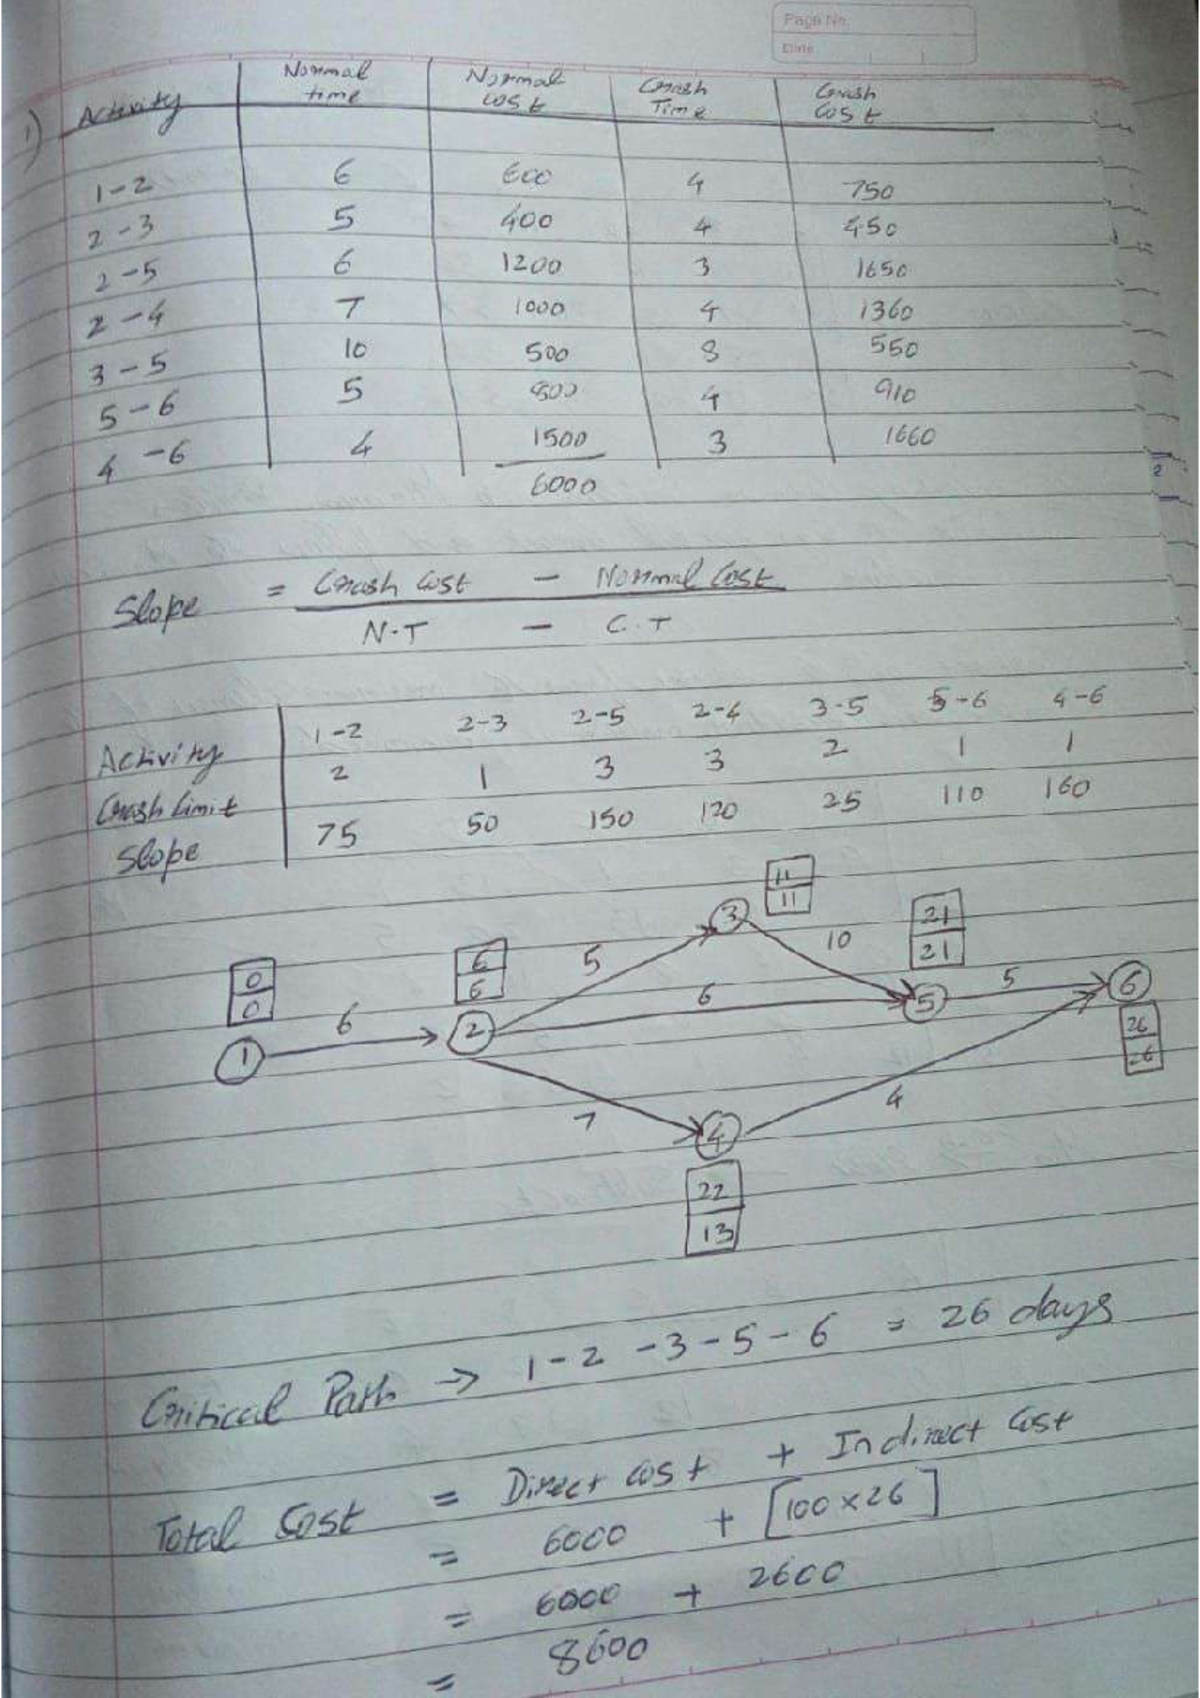 Page No.
Date
1)
Activity Normal time Normal Cost Crash Time Crash Cost
1-2 6 600 4 750
2-3 5 400 4 450
2-5 6 1200 3 1650
2-4 7 1000 4 1360
3-5 10 500 8 550
5-6 5 800 4 910
4-6 4 1500 3 1660
6000
2
Slope = Crash Cost - Normal Cost
N.T - C.T
Activity 1-2 2-3 2-5 2-4 3-5 5-6 4-6
Crash Limit 2 1 3 3 2 1 1
Slope 75 50 150 120 25 110 160
11
11
3
21
21
10
5
6
6
0
0
6
5
5
6
6
1
2
26
26
7
4
4
22
13
Critical Path → 1-2-3-5-6 = 26 days
Total Cost = Direct Cost + Indirect Cost
= 6000 + [100 × 26]
= 6000 + 2600
= 8600